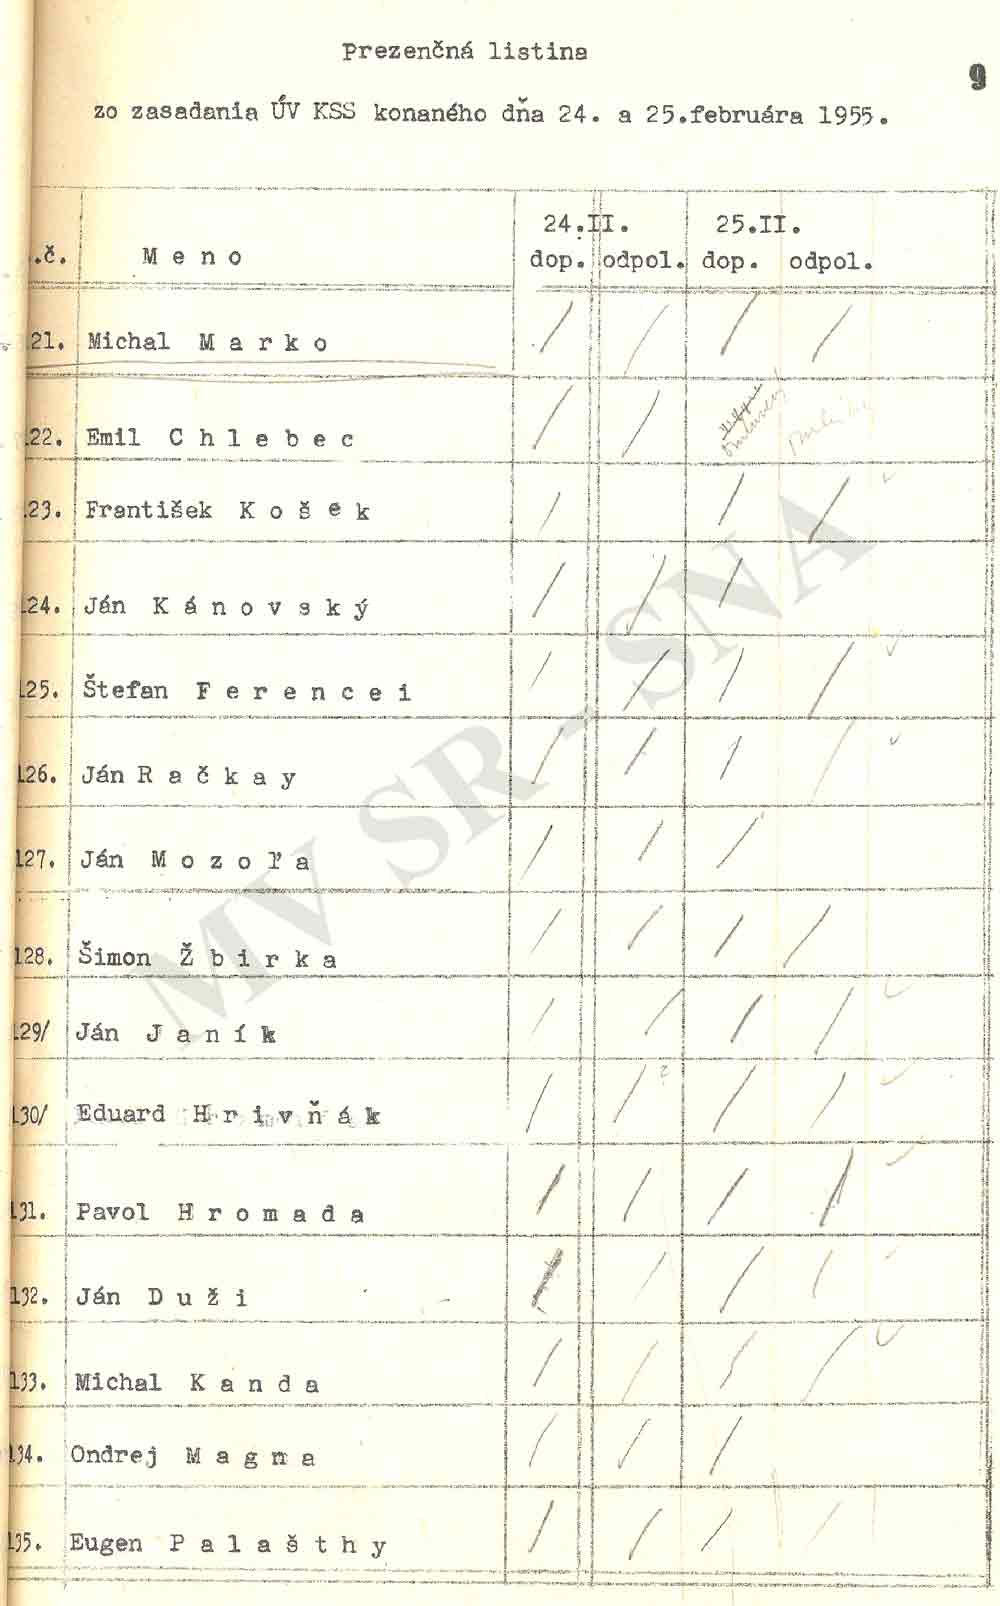 Prezenčná listina
9
zo zasadania ÚV KSS konaného dňa 24. a 25.februára 1955.
24.II. 25.II.
.č. M e n o dop. odpol. dop. odpol.
121. Michal M a r k o / / / /
122. Emil C h l e b e c / /
123. František K o š e k / / /
124. Ján K á n o v s k ý / / /
125. Štefan F e r e n c e i / / / /
126. Ján R a č k a y / / / /
127. Ján M o z o ľ a / / /
128. Šimon Ž b i r k a / / / /
129/ Ján J a n í k / / / /
130/ Eduard H r i v ň á k / / / /
131. Pavol H r o m a d a / / / /
132. Ján D u ž i / / / /
133. Michal K a n d a / / / /
134. Ondrej M a g m a / / /
135. Eugen P a l a š t h y / / / /
MV SR - SNA